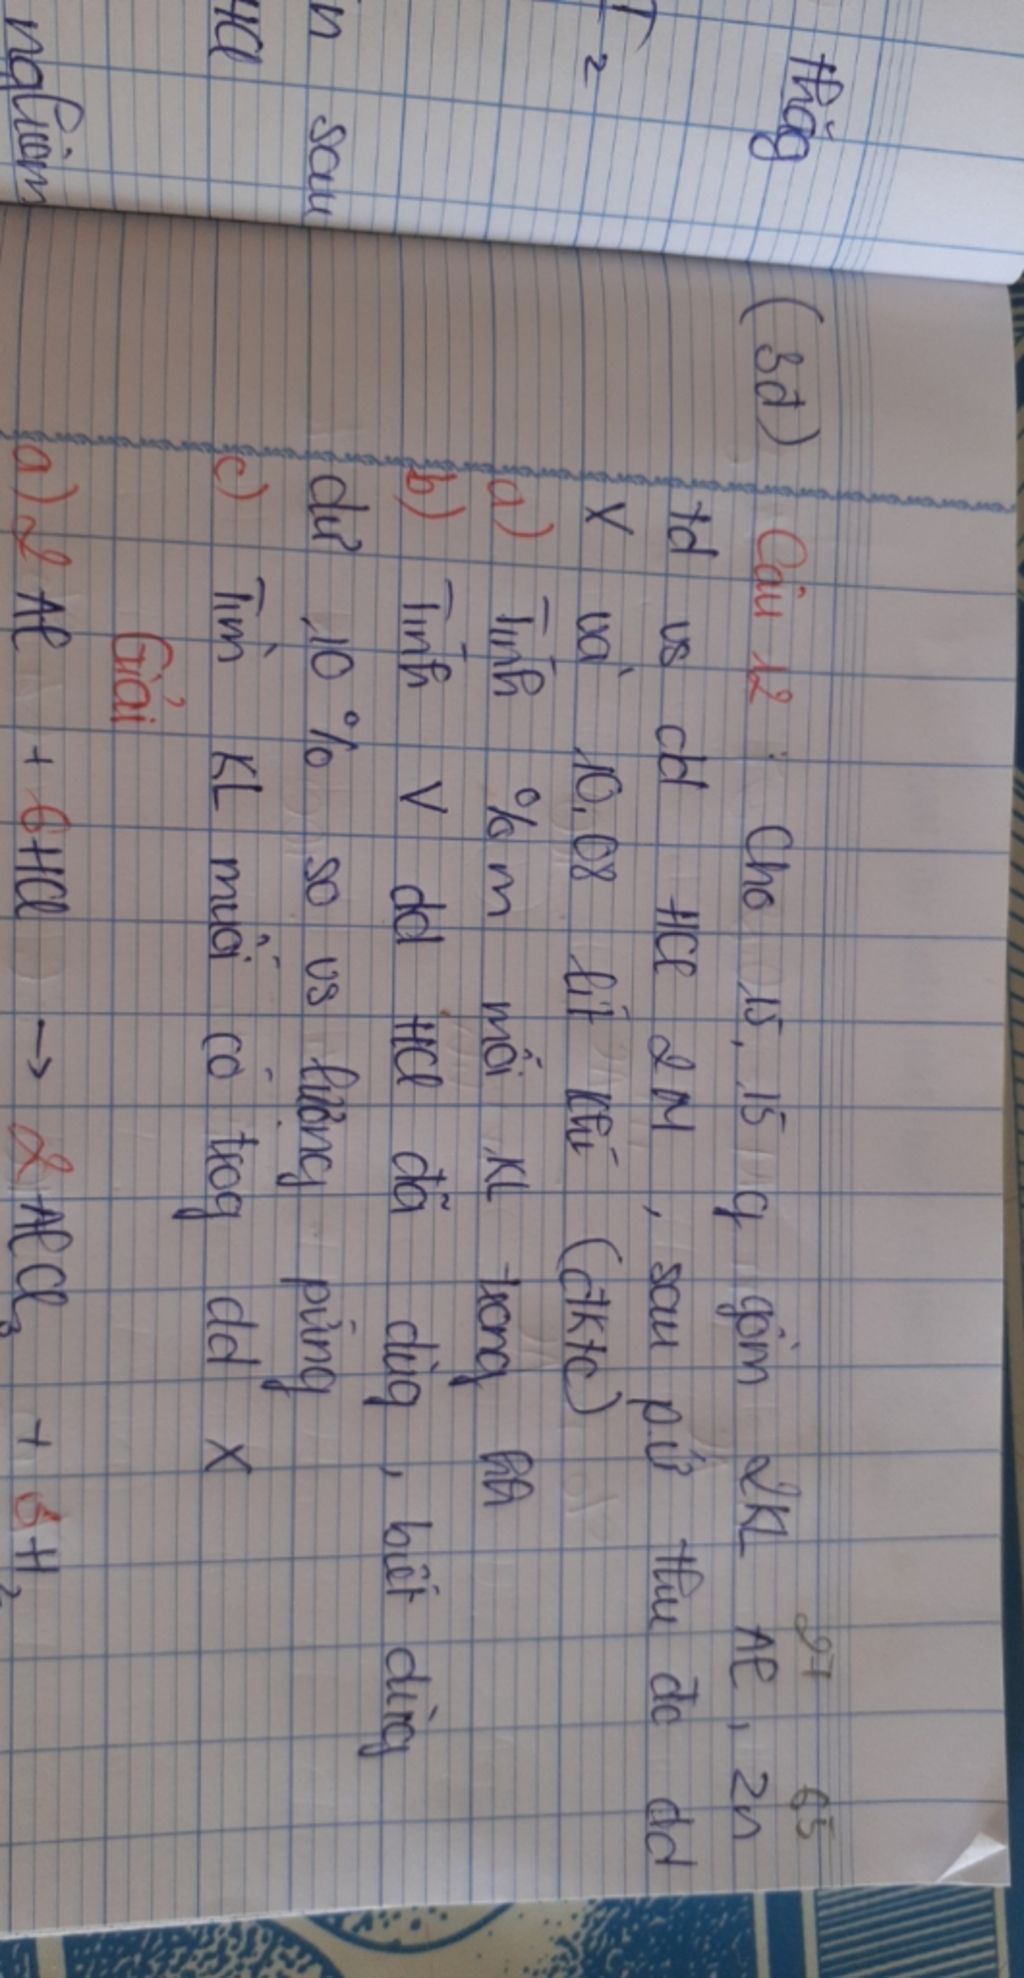 thăg
T
2
n sau
HCl
nghiệm
(3đ) Câu 12 : Cho 15,15 g gồm 2KL Al, Zn
27 65
td vs dd HCl 2M, sau p.ứ thu đc dd
X và 10,08 lít khí (đktc)
a) Tính % m mỗi KL trong hh
b) Tính V dd HCl đã dùg, biết dùng
dư 10% so vs lượng pứng
c) Tìm KL muối có trog dd X
Giải
a) 2Al + 6HCl → 2AlCl₃ + 3H₂